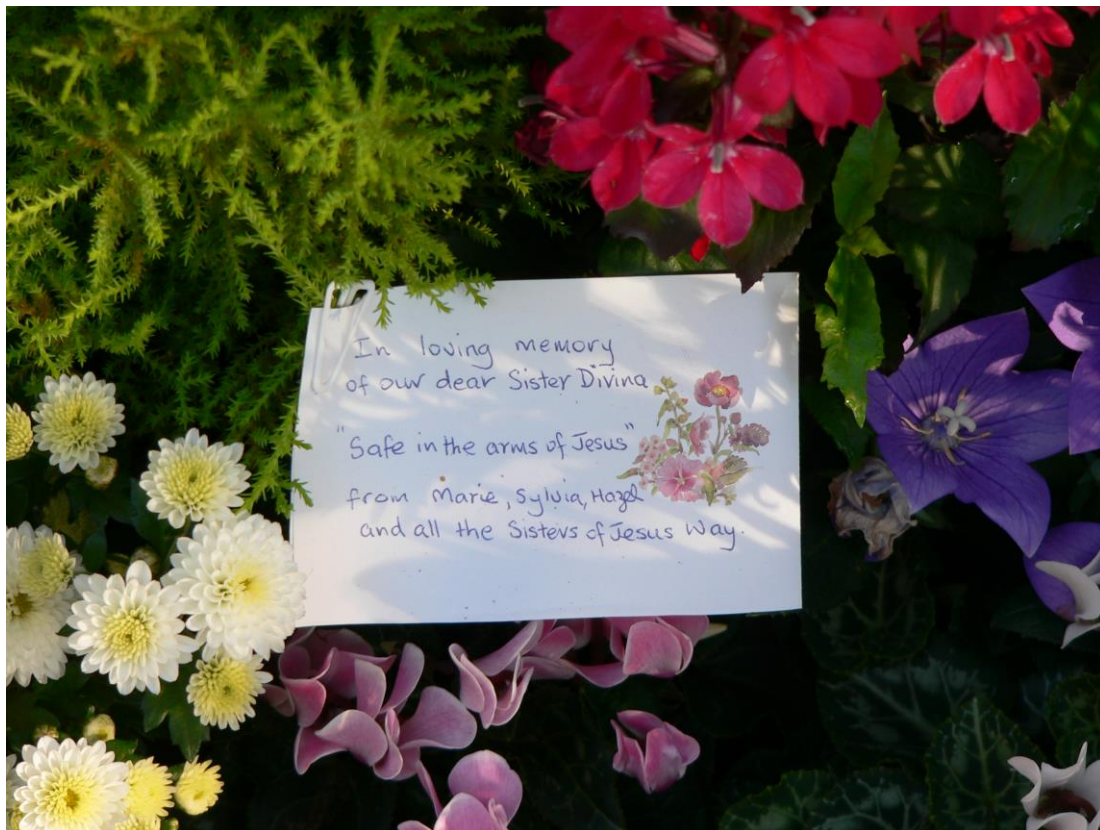 In loving memory
of our dear Sister Divina
"Safe in the arms of Jesus"
from Marie, Sylvia, Hazel
and all the Sisters of Jesus Way.